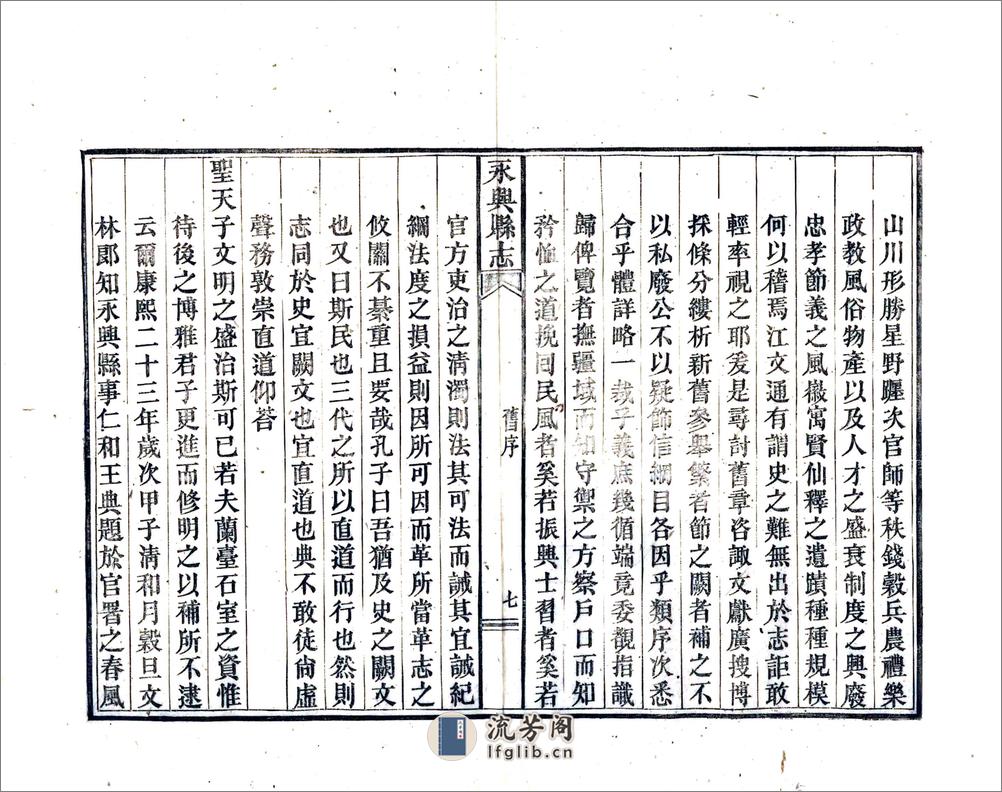 山川形勝星野躔次官師等秩錢榖兵農禮樂
政教風俗物產以及人才之盛衰制度之興廢
忠孝節義之風徽寓賢仙釋之遺蹟種種規模
何以稽焉江文通有謂史之難無出於志詎敢
輕率視之耶爰是尋討舊章咨諏文獻廣搜博
採條分縷析新舊參舉繁者節之闕者補之不
以私廢公不以疑節信綱目各因乎類序次悉
合乎體詳略一裁乎義庶幾循端竟委觀指識
歸俾覽者撫疆域而知守禦之方察戶口而知
矜恤之道挽回民風者奚若振興士習者奚若
永興縣志
舊序
七
官方吏治之清濁則法其可法而誡其宜誡紀
綱法度之損益則因所可因而革所當革志之
攸關不綦重且要哉孔子曰吾猶及史之闕文
也又曰斯民也三代之所以直道而行也然則
志同於史宜闕文也宜直道也典不敢徒尙虛
聲務敦崇直道仰荅
聖天子文明之盛治斯可已若夫蘭臺石室之資惟
待後之博雅君子更進而修明之以補所不逮
云爾康熙二十三年歲次甲子清和月榖旦文
林郎知永興縣事仁和王典題於官署之春風
流芳阁
lfglib.cn